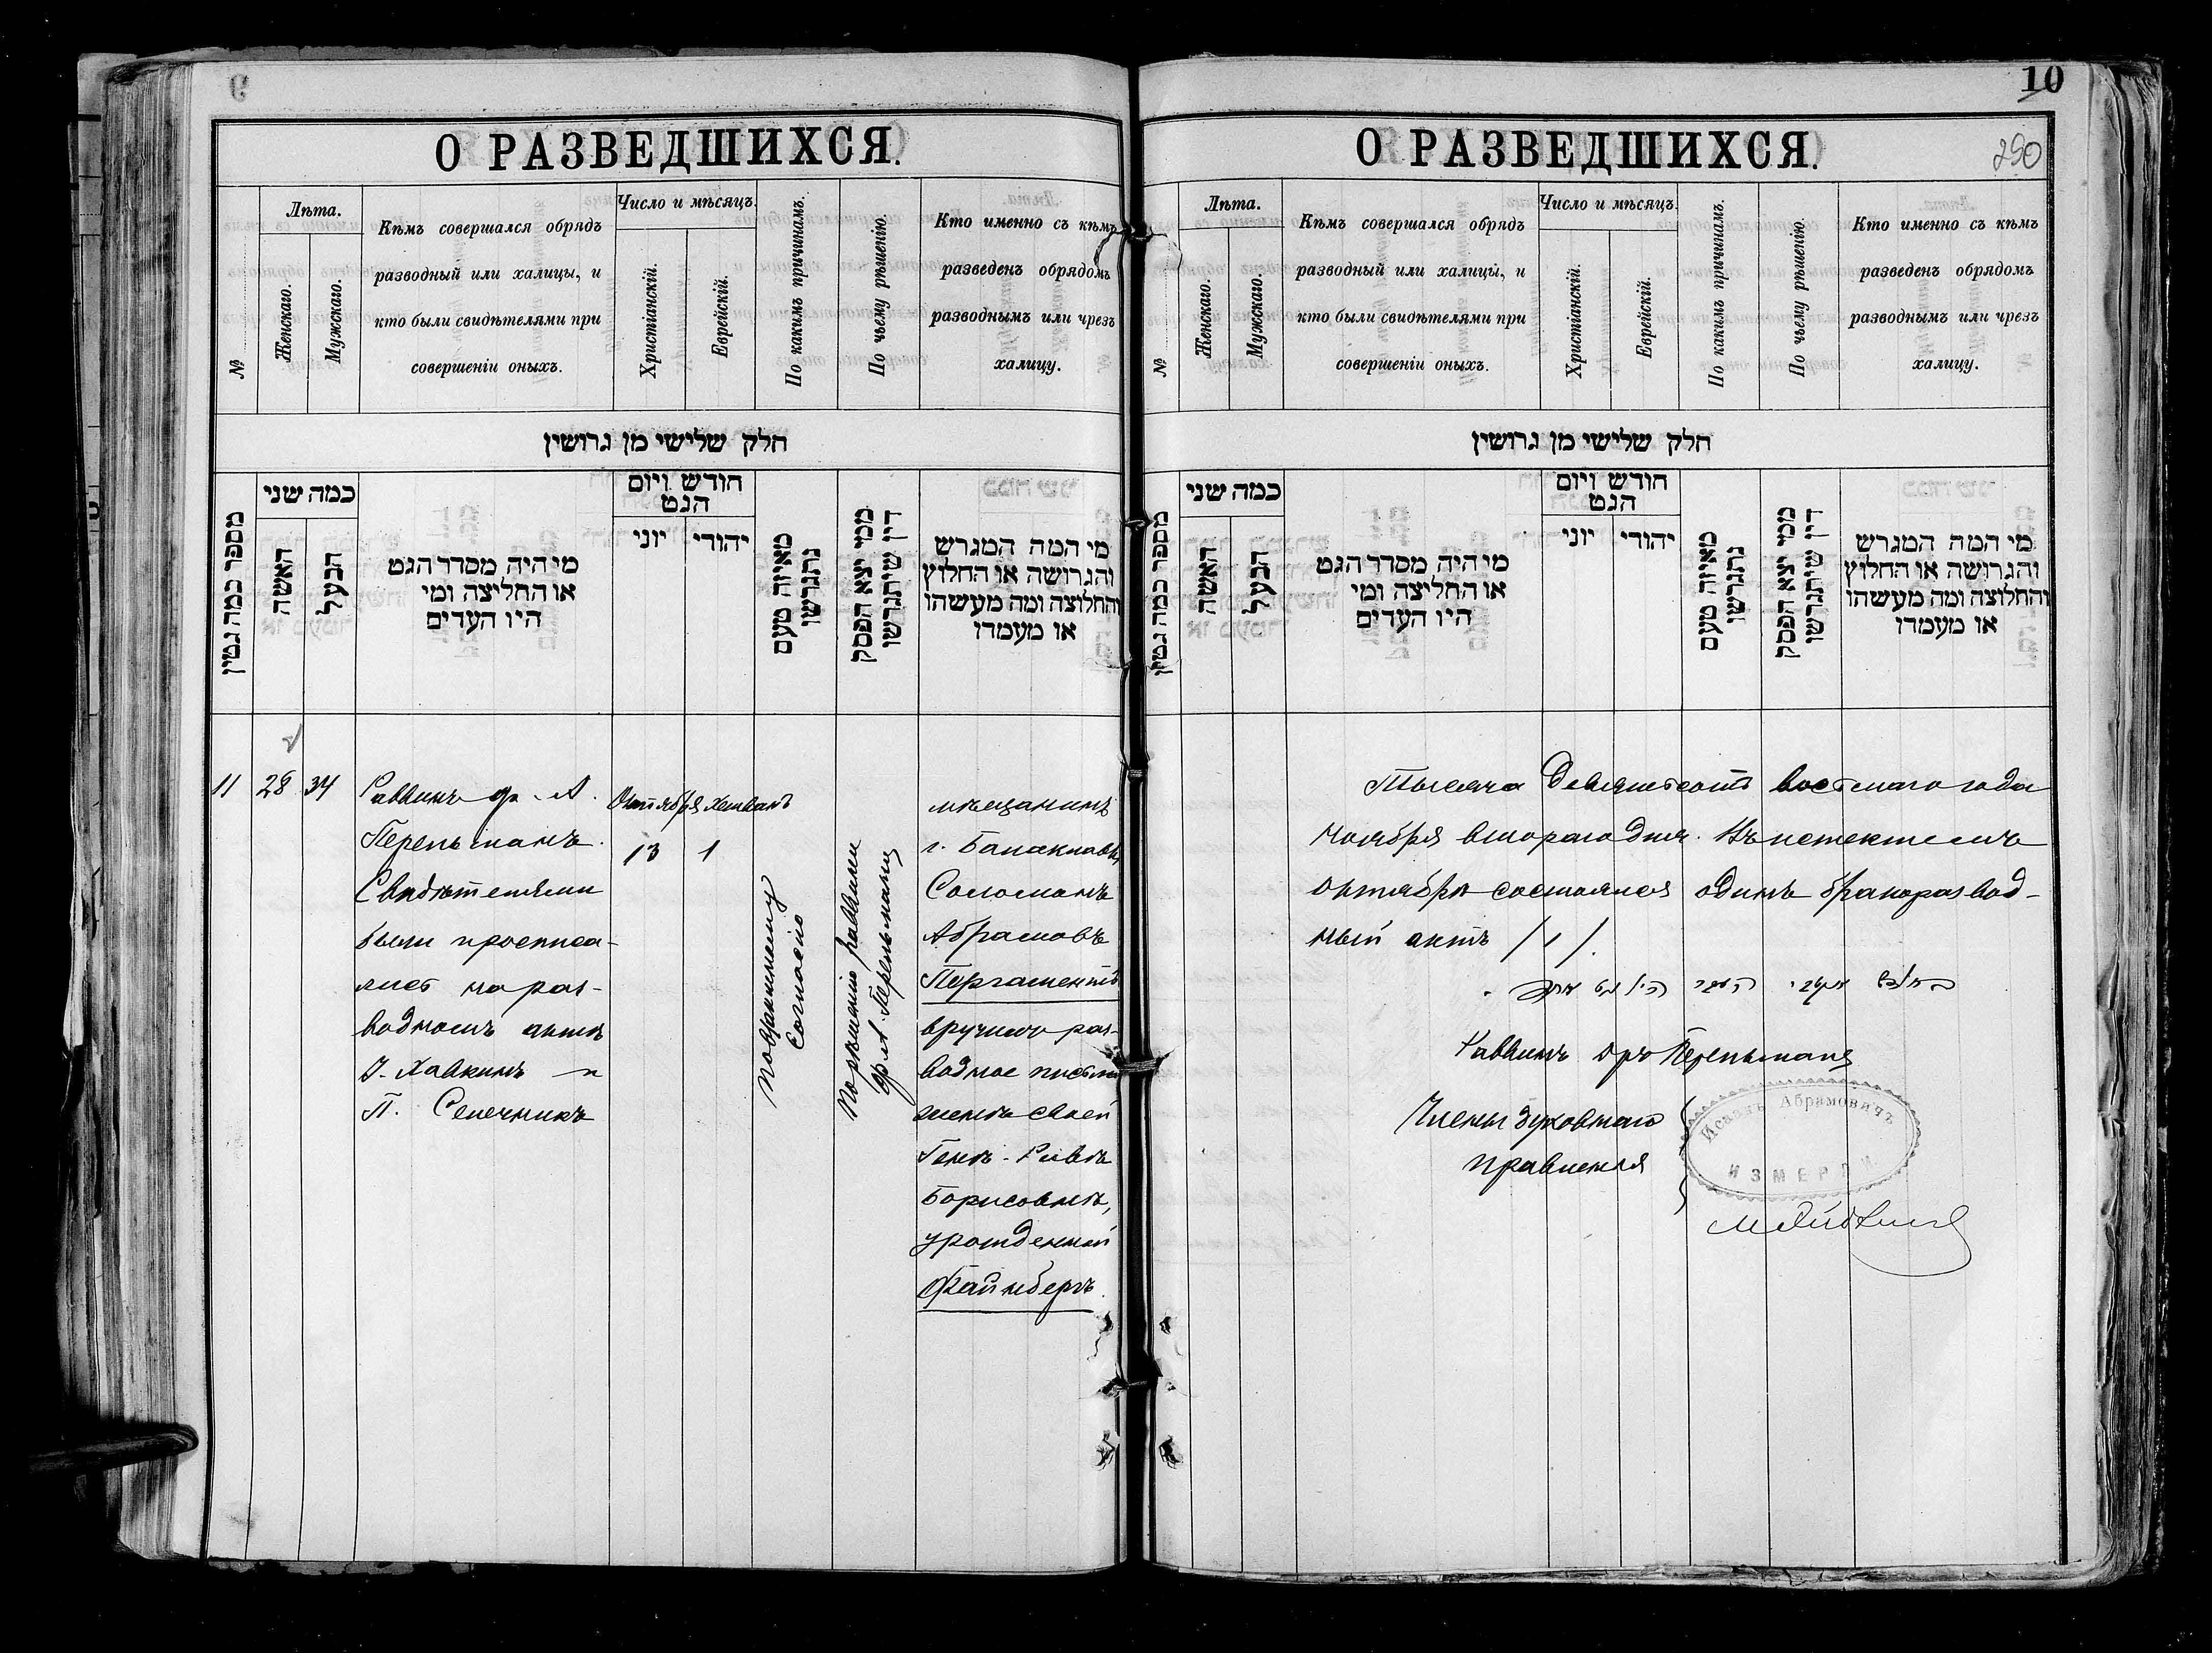 О РАЗВЕДШИХСЯ.
№
Лѣта.
Женскаго.
Мужскаго.
Кѣмъ совершался обрядъ
разводный или халицы, и
кто были свидѣтелями при
совершеніи оныхъ.
Число и мѣсяцъ.
Христіанскій.
Еврейскій.
По какимъ причинамъ.
По чьему рѣшенію.
Кто именно съ кѣмъ
разведенъ обрядомъ
разводнымъ или чрезъ
халицу.
חלק שלישי מן גרושין
מספר כמה גטין
כמה שני
האשה
הבעל
מי היה מסדר הגט
או החליצה ומי
היו העדים
חודש ויום
הגט
יוני
יהודי
מאיזה טעם
נתגרשו
ממי יצא הפסק
דין שיתגרשו
מי המה המגרש
והגרושה או החלוץ
והחלוצה ומה מעשהו
או מעמדו
11
28
34
Раввинъ др. А.
Перельманъ.
Свидѣтелями
были
на раз-
водномъ актѣ
І. Хавкинъ и
П.
Октября
13
Хешванъ
1
По взаимному
согласію
По рѣшенію раввина
др А. Перельмана
мѣщанинъ
г. Балаклавы
Соломонъ
Абрамовъ
Пергаментъ
вручилъ раз-
водное письмо
женѣ своей
Генѣ-Ривѣ
Борисовнѣ,
урожденной
Файнбергъ.
10
250
О РАЗВЕДШИХСЯ.
№
Лѣта.
Женскаго.
Мужскаго.
Кѣмъ совершался обрядъ
разводный или халицы, и
кто были свидѣтелями при
совершеніи оныхъ.
Число и мѣсяцъ.
Христіанскій.
Еврейскій.
По какимъ причинамъ.
По чьему рѣшенію.
Кто именно съ кѣмъ
разведенъ обрядомъ
разводнымъ или чрезъ
халицу.
חלק שלישי מן גרושין
מספר כמה גטין
כמה שני
האשה
הבעל
מי היה מסדר הגט
או החליצה ומי
היו העדים
חודש ויום
הגט
יוני
יהודי
מאיזה טעם
נתגרשו
ממי יצא הפסק
דין שיתגרשו
מי המה המגרש
והגרושה או החלוץ
והחלוצה ומה מעשהו
או מעמדו
Тысяча девятьсотъ восьмаго года
ноября втораго дня. Въ истекшемъ
октябрѣ состоялся одинъ бракоразвод-
ный актъ /1/.
Раввинъ др Перельманъ
Члены духовнаго
правленія
Исаакъ Абрамовичъ